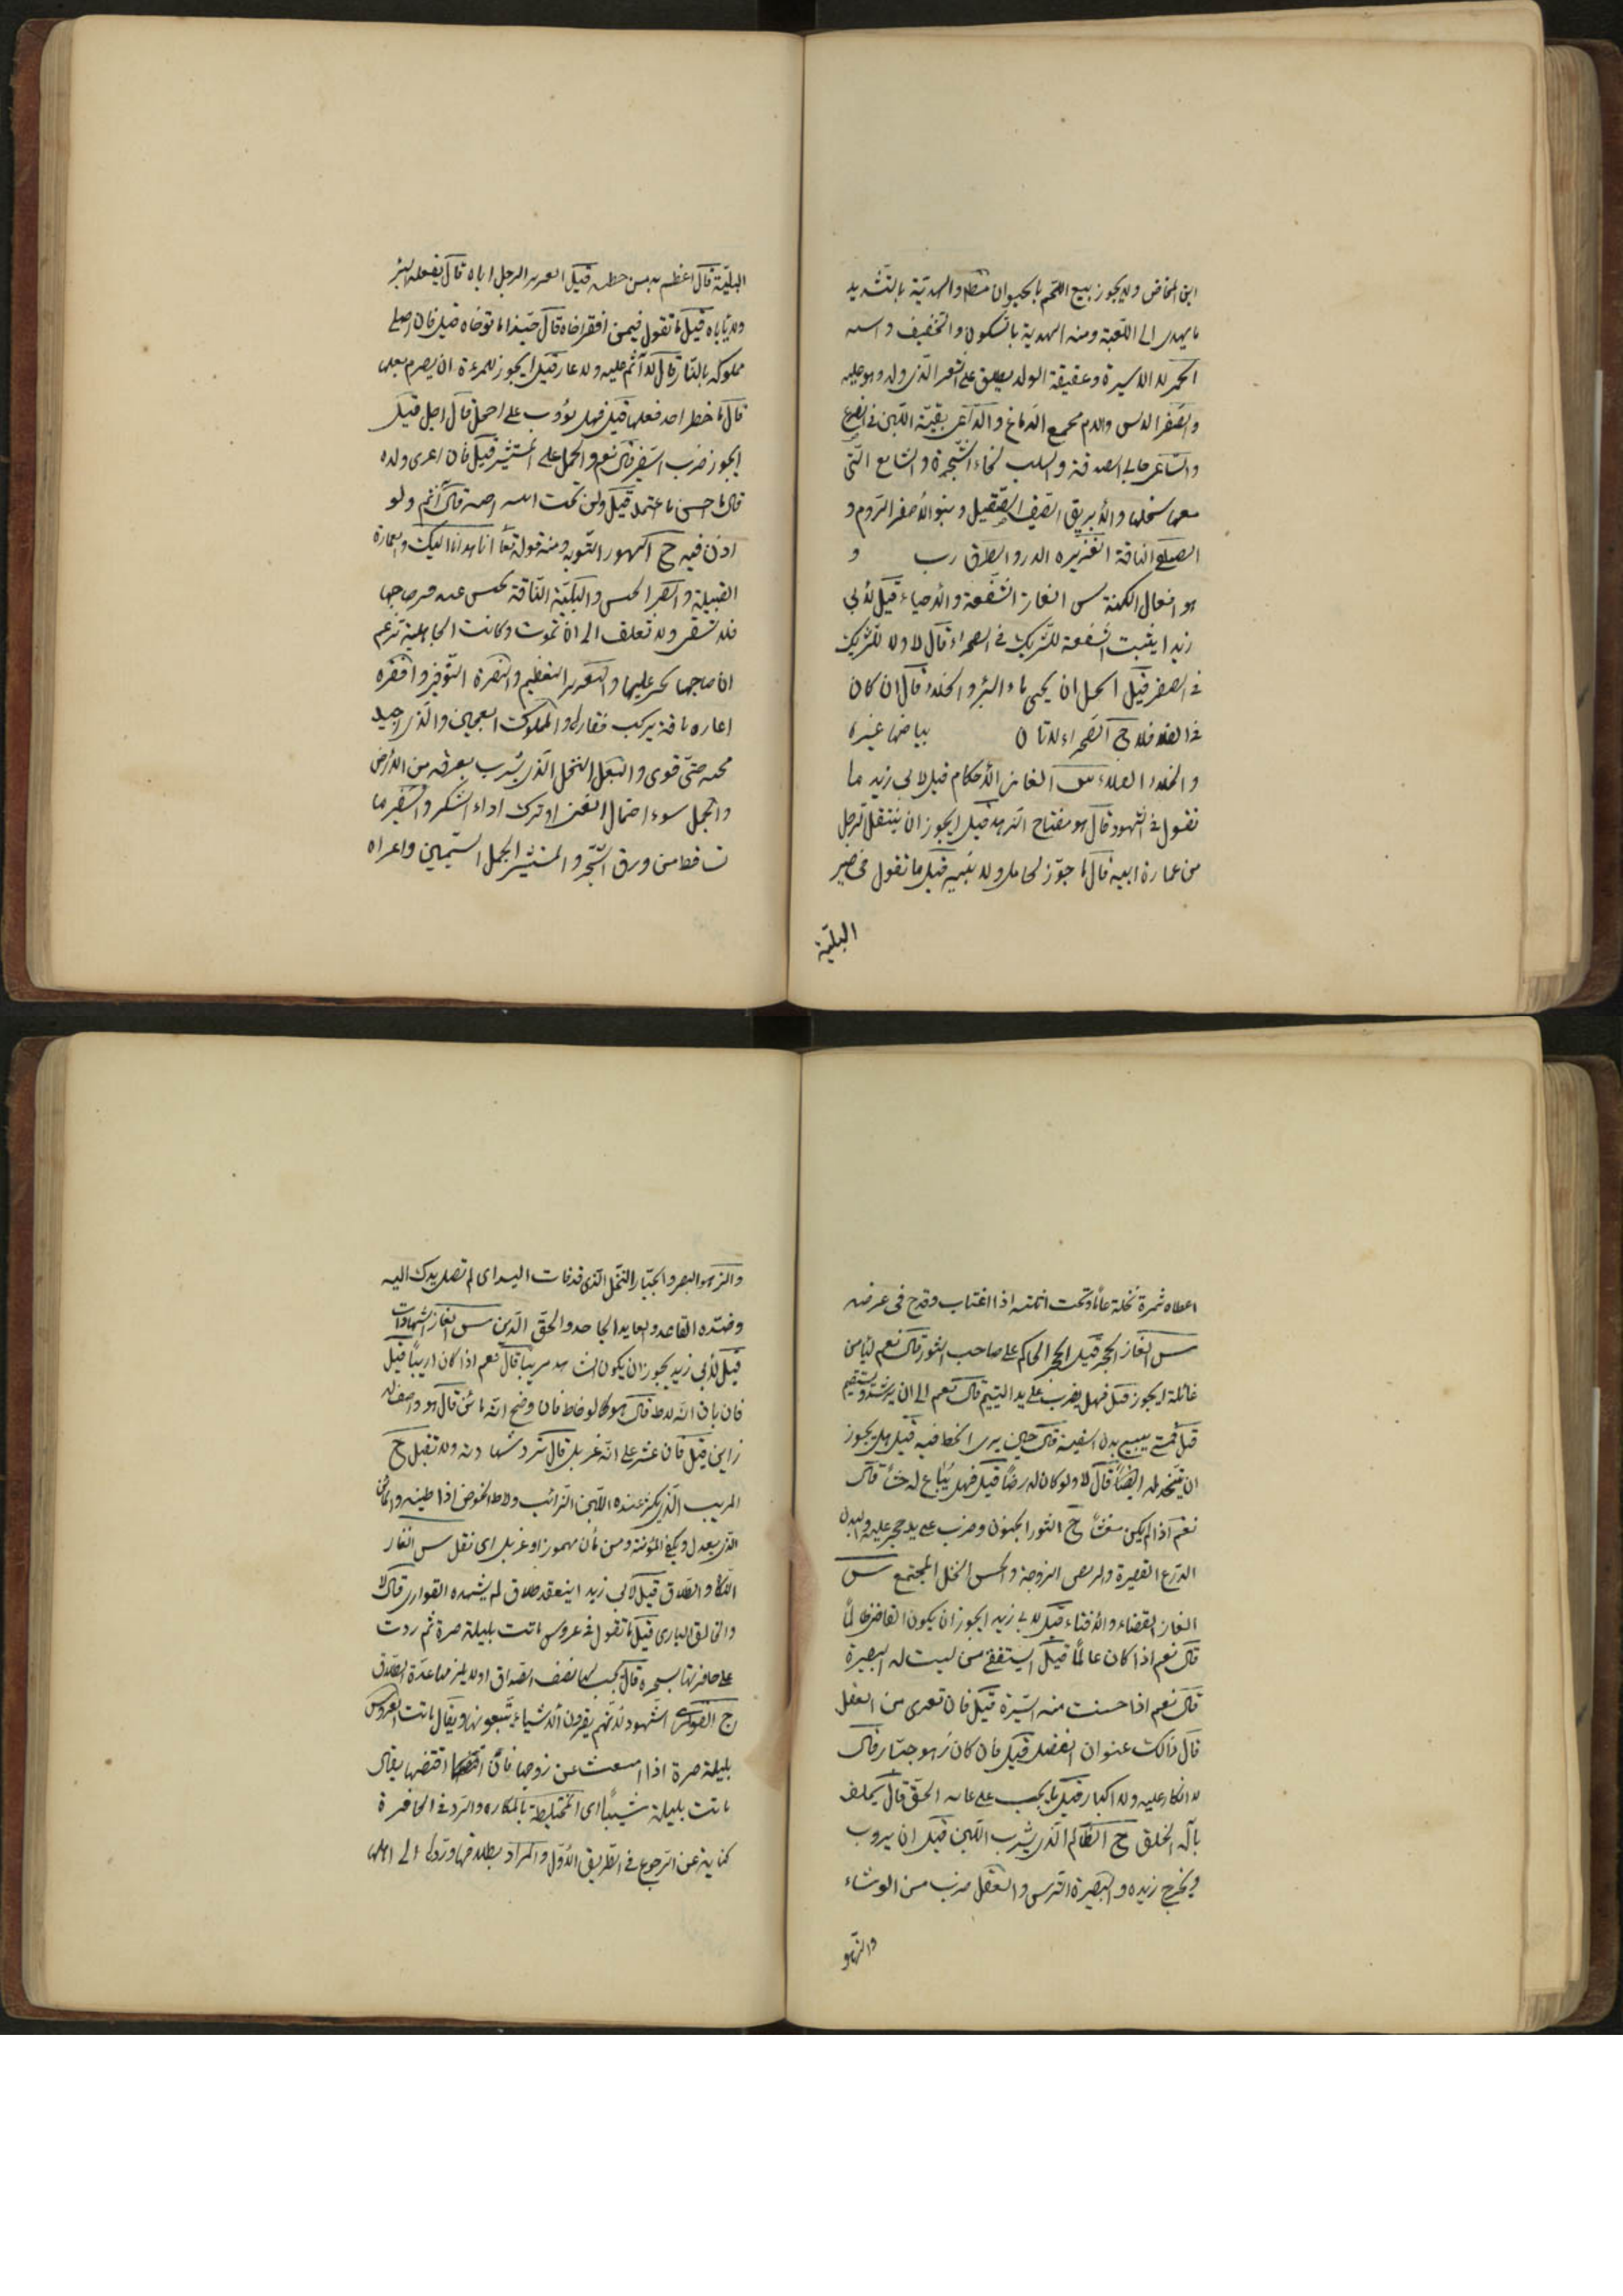 ابن المخاض ولا يجوز بيع اللحم بالحيوان مطلقا والهدية بالتشديد
ما يهدى الى الكعبة ومنه الهدية بالسكون والتخفيف
الحمر لا الاسيرة وعقيقة الولد يطلق على الشعر الذي ولد وهو عليه
والصقر الدبس والدم مجمع الدماغ والداعى بقية اللبن في الضرع
والساعى جابى الصدقة والسلب لحاء الشجرة والشايع التى
معها سخلها والابريق السيف الصقيل وبنو الاصفر الروم و
الناقة الغزيرة الدر و
هو الكهنة س الغاز الشفعة والاحياء قيل لابي
زيد ايثبت الشفعة للشريك في الصحراء قال لا ولا للشريك
في الصفر قيل ايحل ان يحمى ماء البئر والخلا قال ان كان
في الفلا فلا ج الصحراء الاتان بياضها غبرة
والخلا الكلاء س الغاز الاحكام قيل لابي زيد ما
تقول في التهود قال هو مفتاح الزهد قيل ايجوز ان ينتقل الرجل
من عمارة ابيه قال ما جوز لخامل ولا نبيه قيل ما تقول في صبر
البلية
البلية قال اعظم به من خطية قيل ايعزر الرجل اباه قال يفعله البر
ولا يأباه قيل ما تقول فيمن افقر اخاه قال حبذا ما توخاه قيل فان اصلى
مملوكه بالنار قال لا اثم عليه ولا عار قيل ايجوز للمرءة ان يصرم بعلها
قال ما خطر احد فعلها قيل فهل يؤدب على احمل قال اجل قيل
ايجوز ضرب السفير قال نعم والحمل على المستشير قيل فان اعرى ولده
قال ما احسن ما اعتمد قيل ولمن نحت اثلته قال اثم ولو
اذن فيه ج التهود التوبة ومنه قوله تعا انا هدنا اليك والعمارة
القبيلة والصبر الحبس والبلية الناقة تحبس عند قبر صاحبها
فلا تسقى ولا تعلف الى ان تموت وكانت الجاهلية تزعم
ان صاحبها يحشر عليها والتعزير التعظيم والنصرة التوقير وافقره
اعاره ناقة يركب فقارها والمملوك العجين والذي اجيد
عجنه حتى قوى والبعل النخل الذي يشرب بعرقه من الارض
والخجل سوء احتمال الغنى او ترك اداء الشكر والسفير ما
تساقط من ورق الشجر والمستشير الجمل السمين واعراه
اعطاه ثمرة نخلة عاما ونحت اثلته اذا اغتاب وقدح في عرضه
س الغاز الحجر قيل ايحجر الحاكم على صاحب الثور قال نعم ليأمن
غائلة ايجوز قيل فهل يضرب على يد اليتيم قال نعم الى ان يرشد ويستقيم
قيل فمتى يبيع بدن السفيه قال حين يرى الحظ فيه قيل هل يجوز
ان يتخذ له ايضا قال لا ولو كان له رضا قيل فهل يبتاع له حشا قال
نعم اذا لم يكن مغشى ج الثور الجنون وضرب على يده حجر عليه والبدن
الدرع القصيرة والربض الزوجة والحش النخل المجتمع س
الغاز القضاء والافتاء قيل لابي زيد ايجوز ان يكون القاضى ظالما
قال نعم اذا كان عالما قيل ايستقضى من ليست له البصيرة
قال نعم اذا حسنت منه السيرة قيل فان تعرى من العقل
قال ذاك عنوان الفضل قيل فان كان زهو جبار قال
لا انكار عليه ولا اكبار قيل ما يجب على عابد الحق قال يحلف
بآله الخلق ج الظالم الذي يشرب اللبن قبل ان يروب
ويخرج زبده والبصيرة الترس والعقل ضرب من الوشاء
والزهو
والزهو البسر والجبار النخل الذي قد فات اليد اى لم تصل يدك اليه
وضده القاعد والعابد الجاحد والحق الدين س الغاز الشهادات
قيل لابي زيد يجوز ان يكون الشاهد مريبا قال نعم اذا كان اريبا قيل
فان بان انه لاط قال هو كما لو خاط فان وضح انه مائن قال هو وصف له
زاين قيل فان عثر على انه غربل قال ترد شهادته ولا تقبل ج
المريب الذي يكثر عنده اللبن الرائب ولاط الحوض اذا طينه والمائن
الذي يعدل ويكفي المؤنة ومن مأن مهموز او غربل اى نقل س الغاز
النكاح والطلاق قيل لابي زيد اينعقد طلاق لم يشهده القوارى قال لا
والخالق البارى قيل ما تقول في عروس باتت بليلة حرة ثم ردت
على حافرتها بسحرة قال يجب لها نصف الصداق ولا يلزمها عدة الطلاق
ج القوارى الشهود لانهم يقرون الاشياء يتبعونها ويقال باتت العروس
بليلة حرة اذا امتنعت عن زوجها فان اقتضها يقال
باتت بليلة شيباء اى المختلطة بالمكاره والرد في الحافرة
كناية عن الرجوع في الطريق الاول والمراد بطلاقها وردها الى اهلها